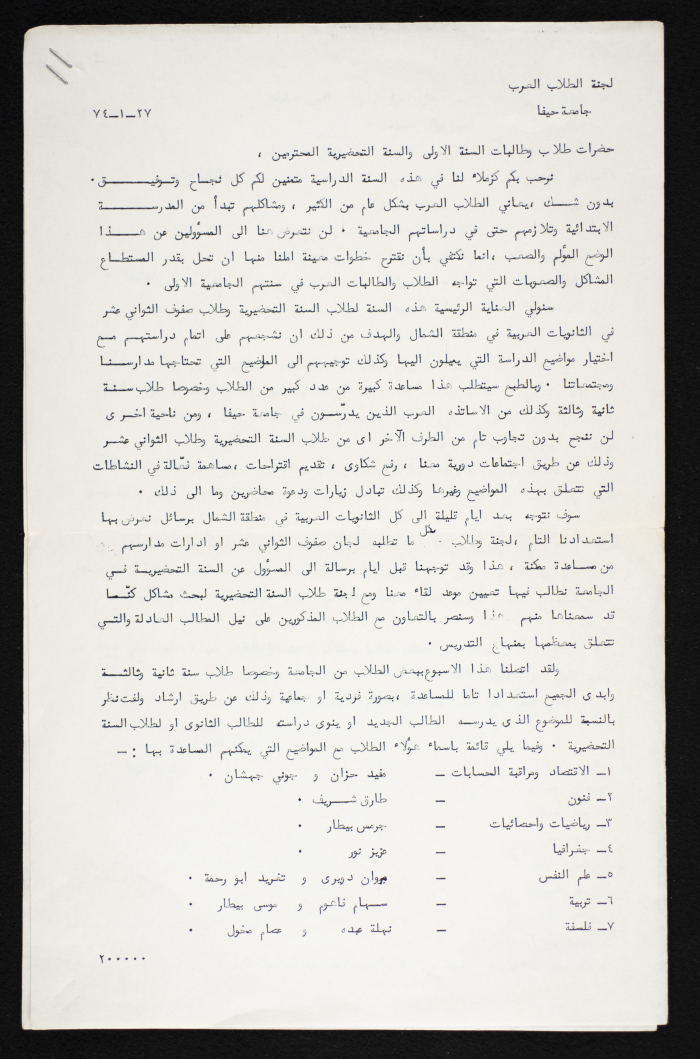 لجنة الطلاب العرب
جامعة حيفا
٢٧-١-٧٤
حضرات طلاب وطالبات السنة الاولى والسنة التحضيرية المحترمين ،
نرحب بكم كزملاء لنا في هذه السنة الدراسية متمنين لكم كل نجاح وتوفيق .
بدون شك ، يعاني الطلاب العرب بشكل عام من الكثير ، ومشاكلهم تبدأ من المدرسة
الابتدائية وتلازمهم حتى في دراساتهم الجامعية . لن نتعرض هنا الى المسؤولين عن هذا
الوضع المؤلم والصعب ، انما نكتفي بأن نقترح خطوات معينة املنا منها ان تحل بقدر المستطاع
المشاكل والصعوبات التي تواجه الطلاب والطالبات العرب في سنتهم الجامعية الاولى .
سنولي العناية الرئيسية هذه السنة لطلاب السنة التحضيرية وطلاب صفوف الثواني عشر
في الثانويات العربية في منطقة الشمال والهدف من ذلك ان نشجعهم على اتمام دراستهم مع
اختيار مواضيع الدراسة التي يميلون اليها وكذلك توجيههم الى المواضيع التي تحتاجها مدارسنا
ومجتمعاتنا . وبالطبع سيتطلب هذا مساعدة كبيرة من عدد كبير من الطلاب وخصوصا طلاب سنة
ثانية وثالثة وكذلك من الاساتذه العرب الذين يدرّسون في جامعة حيفا ، ومن ناحية اخرى
لن ننجح بدون تجاوب تام من الطرف الآخر اى من طلاب السنة التحضيرية وطلاب الثواني عشر
وذلك عن طريق اجتماعات دورية معنا ، رفع شكاوى ، تقديم اقتراحات ، مساهمة فعّالة في النشاطات
التي تتعلق بهذه المواضيع وغيرها وكذلك تبادل زيارات ودعوة محاضرين وما الى ذلك .
سوف نتوجه بعد ايام قليلة الى كل الثانويات العربية في منطقة الشمال برسائل نعرض بها
استعدادنا التام ، لجنة وطلاب بكل ما تطلبه لجان صفوف الثواني عشر او ادارات مدارسهم
من مساعدة ممكنة ، هذا وقد توجهنا قبل ايام برسالة الى المسؤول عن السنة التحضيرية في
الجامعة نطالب فيها تعيين موعد لقاء معنا ومع لجنة طلاب السنة التحضيرية لبحث مشاكل كنّا
قد سمعناها منهم هذا وسنصر بالتعاون مع الطلاب المذكورين على نيل المطالب العادلة والتي
تتعلق بمعظمها بمنهاج التدريس .
ولقد اتصلنا هذا الاسبوع ببعض الطلاب من الجامعة وخصوصا طلاب سنة ثانية وثالثة
وابدى الجميع استعدادا تاما للمساعدة ، بصورة فردية او جماعية وذلك عن طريق ارشاد ولفت نظر
بالنسبة للموضوع الذى يدرسه الطالب الجديد او ينوى دراسته للطالب الثانوى او لطلاب السنة
التحضيرية . وفيما يلي قائمة باسماء هؤلاء الطلاب مع المواضيع التي يمكنهم المساعدة بها : -
١- الاقتصاد ومراقبة الحسابات - مفيد حزان و جوني جهشان .
٢- فنون - طارق شريف .
٣- رياضيات واحصائيات - جرمس بيطار .
٤- جغرافيا - عزيز نور .
٥- علم النفس - مروان دويرى و تغريد ابو رحمة .
٦- تربية - سهام ناهوم و موسى بيطار .
٧- فلسفة - نهلة عبده و عصام مخول .
٢٠٠٠٠٠